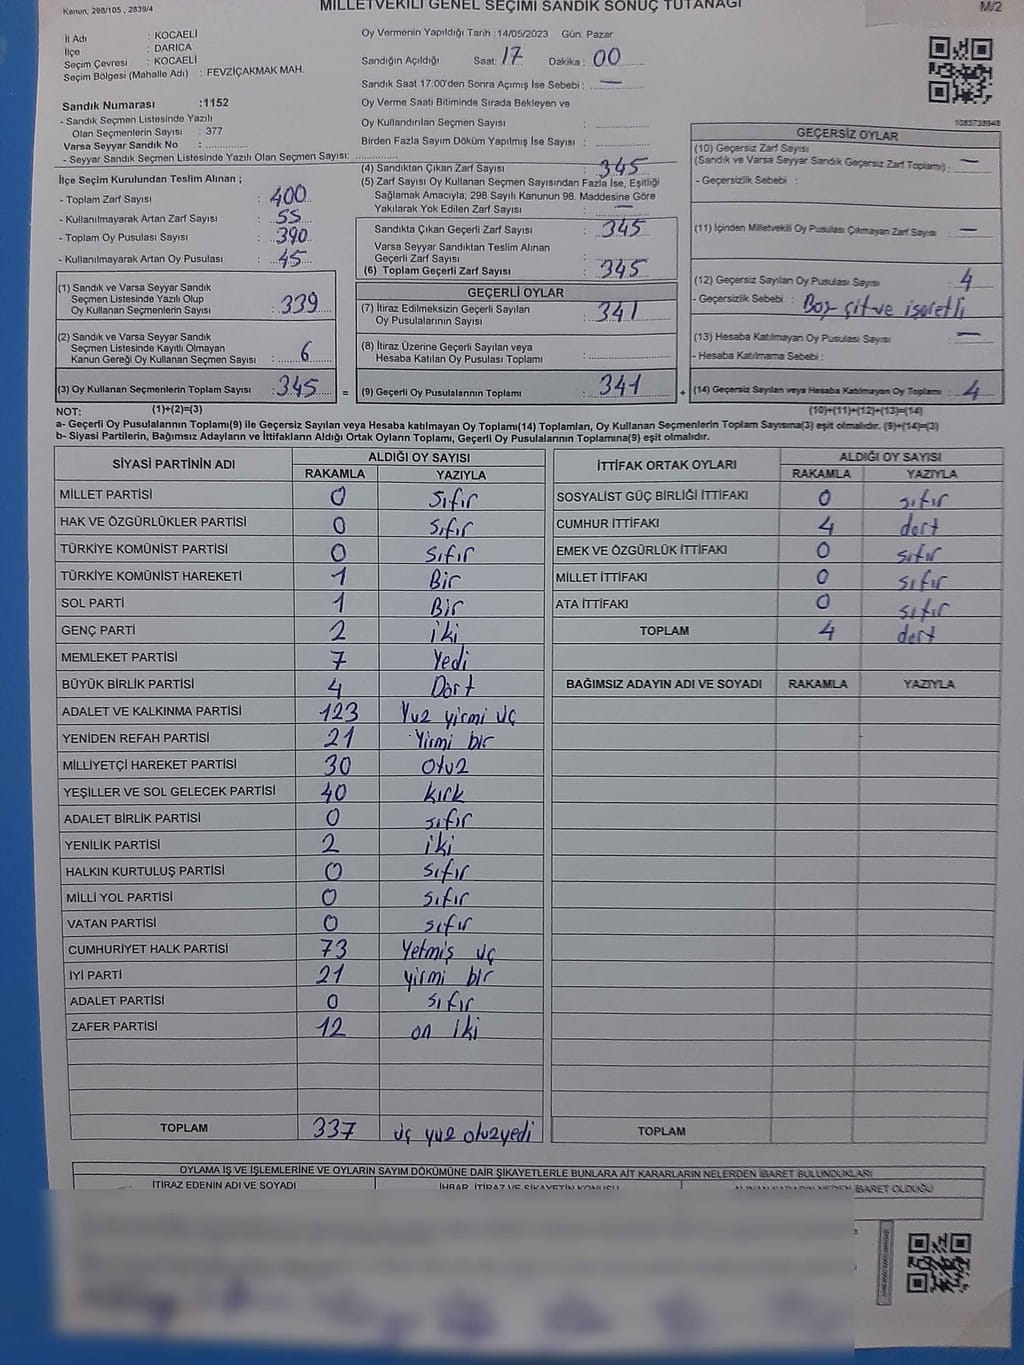 Kanun, 298/105 , 2839/4
MİLLETVEKİLİ GENEL SEÇİMİ SANDIK SONUÇ TUTANAĞI
M/2
İl Adı : KOCAELİ
İlçe : DARICA
Seçim Çevresi : KOCAELİ
Seçim Bölgesi (Mahalle Adı) : FEVZİÇAKMAK MAH.
Sandık Numarası :1152
- Sandık Seçmen Listesinde Yazılı
Olan Seçmenlerin Sayısı : 377
Varsa Seyyar Sandık No :
- Seyyar Sandık Seçmen Listesinde Yazılı Olan Seçmen Sayısı:
İlçe Seçim Kurulundan Teslim Alınan ;
- Toplam Zarf Sayısı : 400
- Kullanılmayarak Artan Zarf Sayısı : 55
- Toplam Oy Pusulası Sayısı : 390
- Kullanılmayarak Artan Oy Pusulası : 45
(1) Sandık ve Varsa Seyyar Sandık
Seçmen Listesinde Yazılı Olup
Oy Kullanan Seçmenlerin Sayısı : 339
(2) Sandık ve Varsa Seyyar Sandık
Seçmen Listesinde Kayıtlı Olmayan
Kanun Gereği Oy Kullanan Seçmen Sayısı : 6
(3) Oy Kullanan Seçmenlerin Toplam Sayısı : 345 =
Oy Vermenin Yapıldığı Tarih :14/05/2023 Gün: Pazar
Sandığın Açıldığı Saat: 17 Dakika : 00
Sandık Saat 17:00'den Sonra Açımış İse Sebebi : —
Oy Verme Saati Bitiminde Sırada Bekleyen ve
Oy Kullandırılan Seçmen Sayısı :
Birden Fazla Sayım Döküm Yapılmış İse Sayısı :
(4) Sandıktan Çıkan Zarf Sayısı : 345
(5) Zarf Sayısı Oy Kullanan Seçmen Sayısından Fazla İse, Eşitliği
Sağlamak Amacıyla; 298 Sayılı Kanunun 98. Maddesine Göre
Yakılarak Yok Edilen Zarf Sayısı : —
Sandıkta Çıkan Geçerli Zarf Sayısı : 345
Varsa Seyyar Sandıktan Teslim Alınan
Geçerli Zarf Sayısı :
(6) Toplam Geçerli Zarf Sayısı : 345
GEÇERLİ OYLAR
(7) İtiraz Edilmeksizin Geçerli Sayılan
Oy Pusulalarının Sayısı : 341
(8) İtiraz Üzerine Geçerli Sayılan veya
Hesaba Katılan Oy Pusulası Toplamı :
(9) Geçerli Oy Pusulalarının Toplamı : 341 +
GEÇERSİZ OYLAR
(10) Geçersiz Zarf Sayısı
(Sandık ve Varsa Seyyar Sandık Geçersiz Zarf Toplamı) : —
- Geçersizlik Sebebi :
(11) İçinden Milletvekili Oy Pusulası Çıkmayan Zarf Sayısı : —
(12) Geçersiz Sayılan Oy Pusulası Sayısı : 4
- Geçersizlik Sebebi : Boş çift ve işaretli
(13) Hesaba Katılmayan Oy Pusulası Sayısı : —
- Hesaba Katılmama Sebebi :
(14) Geçersiz Sayılan veya Hesaba Katılmayan Oy Toplamı : 4
NOT: (1)+(2)=(3) (10)+(11)+(12)+(13)=(14)
a- Geçerli Oy Pusulalarının Toplamı(9) ile Geçersiz Sayılan veya Hesaba katılmayan Oy Toplamı(14) Toplamları, Oy Kullanan Seçmenlerin Toplam Sayısına(3) eşit olmalıdır. (9)+(14)=(3)
b- Siyasi Partilerin, Bağımsız Adayların ve İttifakların Aldığı Ortak Oyların Toplamı, Geçerli Oy Pusulalarının Toplamına(9) eşit olmalıdır.
SİYASİ PARTİNİN ADI ALDIĞI OY SAYISI
RAKAMLA YAZIYLA
MİLLET PARTİSİ 0 Sıfır
HAK VE ÖZGÜRLÜKLER PARTİSİ 0 Sıfır
TÜRKİYE KOMÜNİST PARTİSİ 0 Sıfır
TÜRKİYE KOMÜNİST HAREKETİ 1 Bir
SOL PARTİ 1 Bir
GENÇ PARTİ 2 iki
MEMLEKET PARTİSİ 7 Yedi
BÜYÜK BİRLİK PARTİSİ 4 Dört
ADALET VE KALKINMA PARTİSİ 123 Yuz yirmi üç
YENİDEN REFAH PARTİSİ 21 Yirmi bir
MİLLİYETÇİ HAREKET PARTİSİ 30 Otuz
YEŞİLLER VE SOL GELECEK PARTİSİ 40 kırk
ADALET BİRLİK PARTİSİ 0 sıfır
YENİLİK PARTİSİ 2 iki
HALKIN KURTULUŞ PARTİSİ 0 sıfır
MİLLİ YOL PARTİSİ 0 sıfır
VATAN PARTİSİ 0 sıfır
CUMHURİYET HALK PARTİSİ 73 Yetmiş üç
İYİ PARTİ 21 yirmi bir
ADALET PARTİSİ 0 sıfır
ZAFER PARTİSİ 12 on iki
TOPLAM 337 üç yuz otuzyedi
İTTİFAK ORTAK OYLARI ALDIĞI OY SAYISI
RAKAMLA YAZIYLA
SOSYALİST GÜÇ BİRLİĞİ İTTİFAKI 0 sıfır
CUMHUR İTTİFAKI 4 dort
EMEK VE ÖZGÜRLÜK İTTİFAKI 0 sıfır
MİLLET İTTİFAKI 0 sıfır
ATA İTTİFAKI 0 sıfır
TOPLAM 4 dort
BAĞIMSIZ ADAYIN ADI VE SOYADI RAKAMLA YAZIYLA
TOPLAM
OYLAMA İŞ VE İŞLEMLERİNE VE OYLARIN SAYIM DÖKÜMÜNE DAİR ŞİKAYETLERLE BUNLARA AİT KARARLARIN NELERDEN İBARET BULUNDUKLARI
İTİRAZ EDENİN ADI VE SOYADI İHBAR, İTİRAZ VE ŞİKAYETİN KONUSU İBARET OLDUĞU